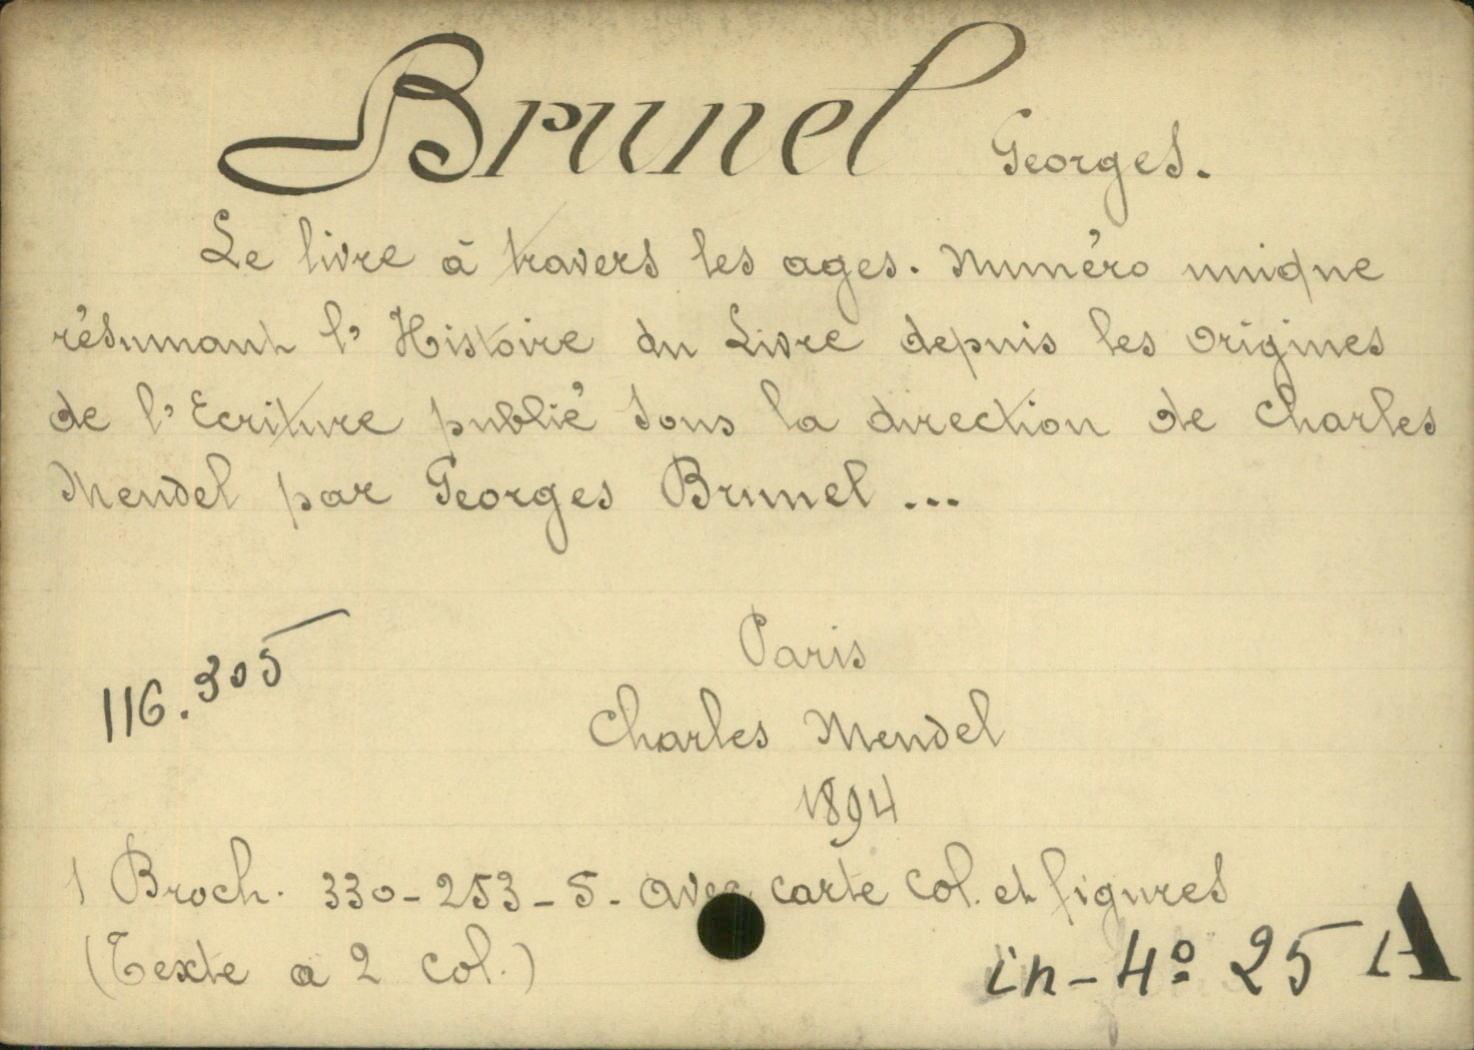 Brunel Georges.
Le livre à travers les ages. Numéro unique
résumant l'Histoire du Livre depuis les origines
de l'Ecriture publié sous la direction de Charles
Mendel par Georges Brunel ...
116.305
Paris
Charles Mendel
1894
1 Broch. 330-253-5- avec carte col. et figures
(Texte a 2 col.)
in-4º 25 A